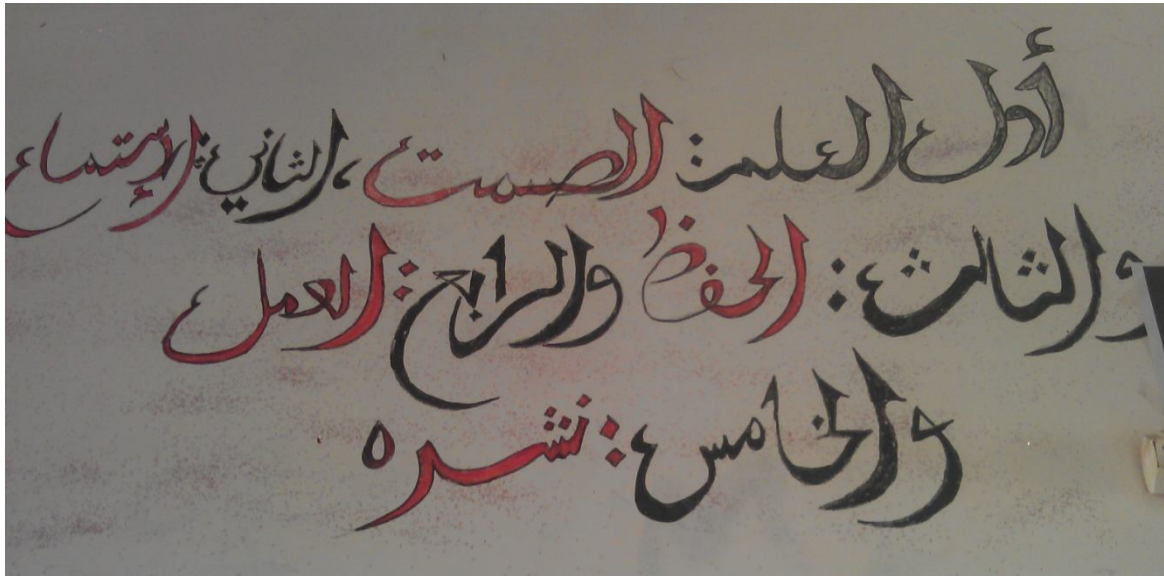 أول العلم: الصمت، الثاني: الإستماع
والثالث: الحفظ والرابع: العمل
والخامس: نشره